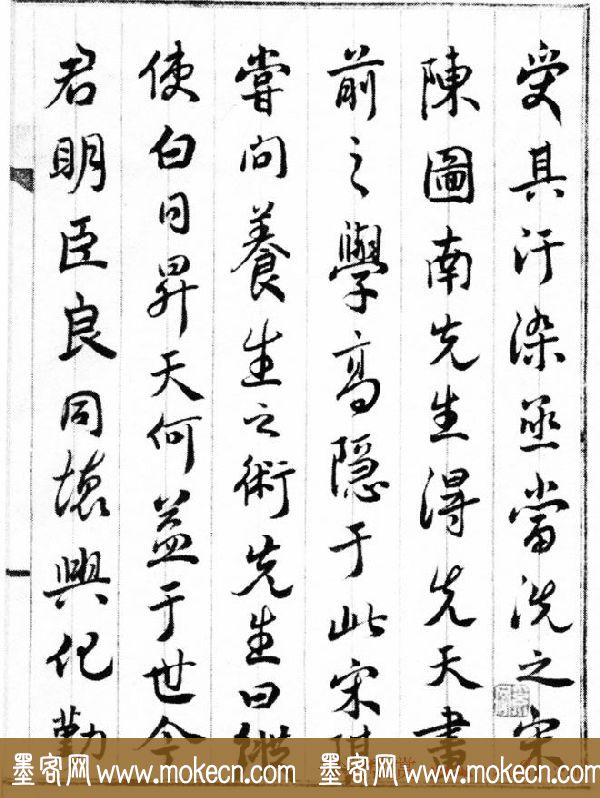 受其汙染亟當洗之宋
陳圖南先生得先天畫
前之學高隱于此宋琪
嘗問養生之術先生曰縱
使白日昇天何益于世今
君明臣良同懷興化勤
墨客网 www.mokecn.com 墨客网 www.mokecn.com